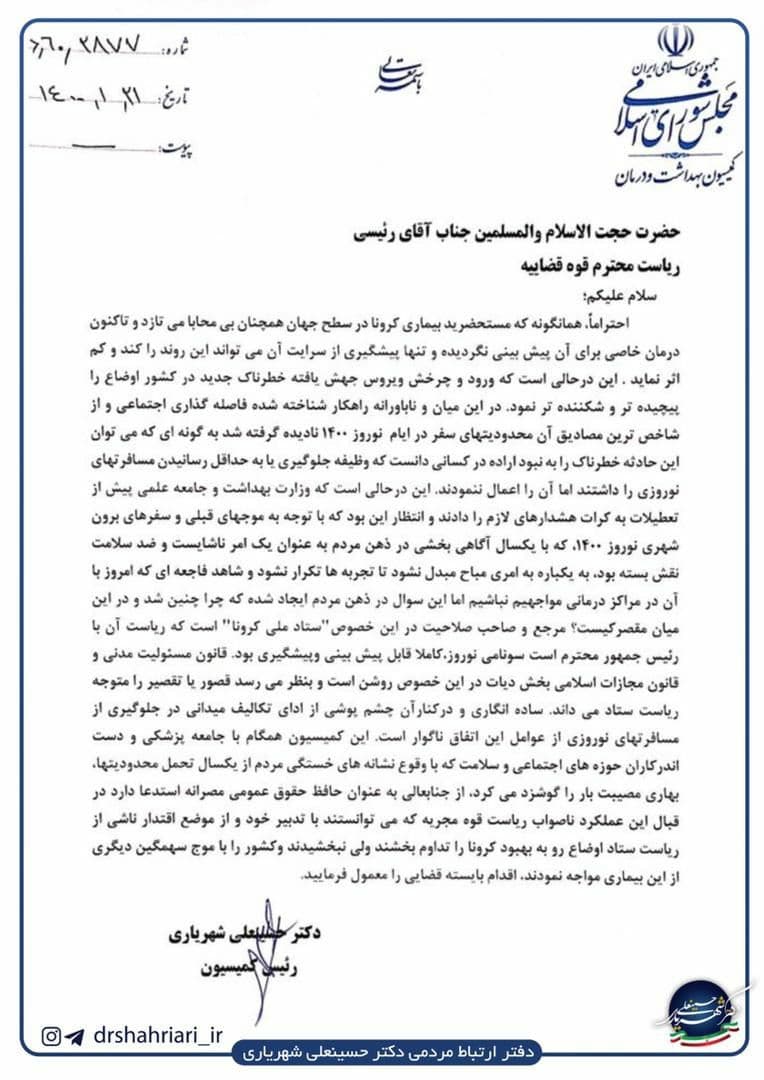 جمهوری اسلامی ایران
مجلس شورای اسلامی
کمیسیون بهداشت و درمان
باسمه تعالی
شماره: ۶۰٫۳۸۷۷
تاریخ: ۱۴۰۰٫۱٫۳۱
پیوست: —
حضرت حجت الاسلام والمسلمین جناب آقای رئیسی
ریاست محترم قوه قضاییه
سلام علیکم؛
احتراماً، همانگونه که مستحضرید بیماری کرونا در سطح جهان همچنان بی محابا می تازد و تاکنون
درمان خاصی برای آن پیش بینی نگردیده و تنها پیشگیری از سرایت آن می تواند این روند را کند و کم
اثر نماید . این درحالی است که ورود و چرخش ویروس جهش یافته خطرناک جدید در کشور اوضاع را
پیچیده تر و شکننده تر نمود. در این میان و ناباورانه راهکار شناخته شده فاصله گذاری اجتماعی و از
شاخص ترین مصادیق آن محدودیتهای سفر در ایام نوروز ۱۴۰۰ نادیده گرفته شد به گونه ای که می توان
این حادثه خطرناک را به نبود اراده در کسانی دانست که وظیفه جلوگیری یا به حداقل رسانیدن مسافرتهای
نوروزی را داشتند اما آن را اعمال ننمودند. این درحالی است که وزارت بهداشت و جامعه علمی پیش از
تعطیلات به کرات هشدارهای لازم را دادند و انتظار این بود که با توجه به موجهای قبلی و سفرهای برون
شهری نوروز ۱۴۰۰، که با یکسال آگاهی بخشی در ذهن مردم به عنوان یک امر ناشایست و ضد سلامت
نقش بسته بود، به یکباره به امری مباح مبدل نشود تا تجربه ها تکرار نشود و شاهد فاجعه ای که امروز با
آن در مراکز درمانی مواجهیم نباشیم اما این سوال در ذهن مردم ایجاد شده که چرا چنین شد و در این
میان مقصرکیست؟ مرجع و صاحب صلاحیت در این خصوص"ستاد ملی کرونا" است که ریاست آن با
رئیس جمهور محترم است سونامی نوروز،کاملا قابل پیش بینی وپیشگیری بود. قانون مسئولیت مدنی و
قانون مجازات اسلامی بخش دیات در این خصوص روشن است و بنظر می رسد قصور یا تقصیر را متوجه
ریاست ستاد می داند. ساده انگاری و درکنارآن چشم پوشی از ادای تکالیف میدانی در جلوگیری از
مسافرتهای نوروزی از عوامل این اتفاق ناگوار است. این کمیسیون همگام با جامعه پزشکی و دست
اندرکاران حوزه های اجتماعی و سلامت که با وقوع نشانه های خستگی مردم از یکسال تحمل محدودیتها،
بهاری مصیبت بار را گوشزد می کرد، از جنابعالی به عنوان حافظ حقوق عمومی مصرانه استدعا دارد در
قبال این عملکرد ناصواب ریاست قوه مجریه که می توانستند با تدبیر خود و از موضع اقتدار ناشی از
ریاست ستاد اوضاع رو به بهبود کرونا را تداوم بخشند ولی نبخشیدند وکشور را با موج سهمگین دیگری
از این بیماری مواجه نمودند، اقدام بایسته قضایی را معمول فرمایید.
دکتر حسینعلی شهریاری
رئیس کمیسیون
دکتر حسینعلی شهریاری
drshahriari_ir
دفتر ارتباط مردمی دکتر حسینعلی شهریاری